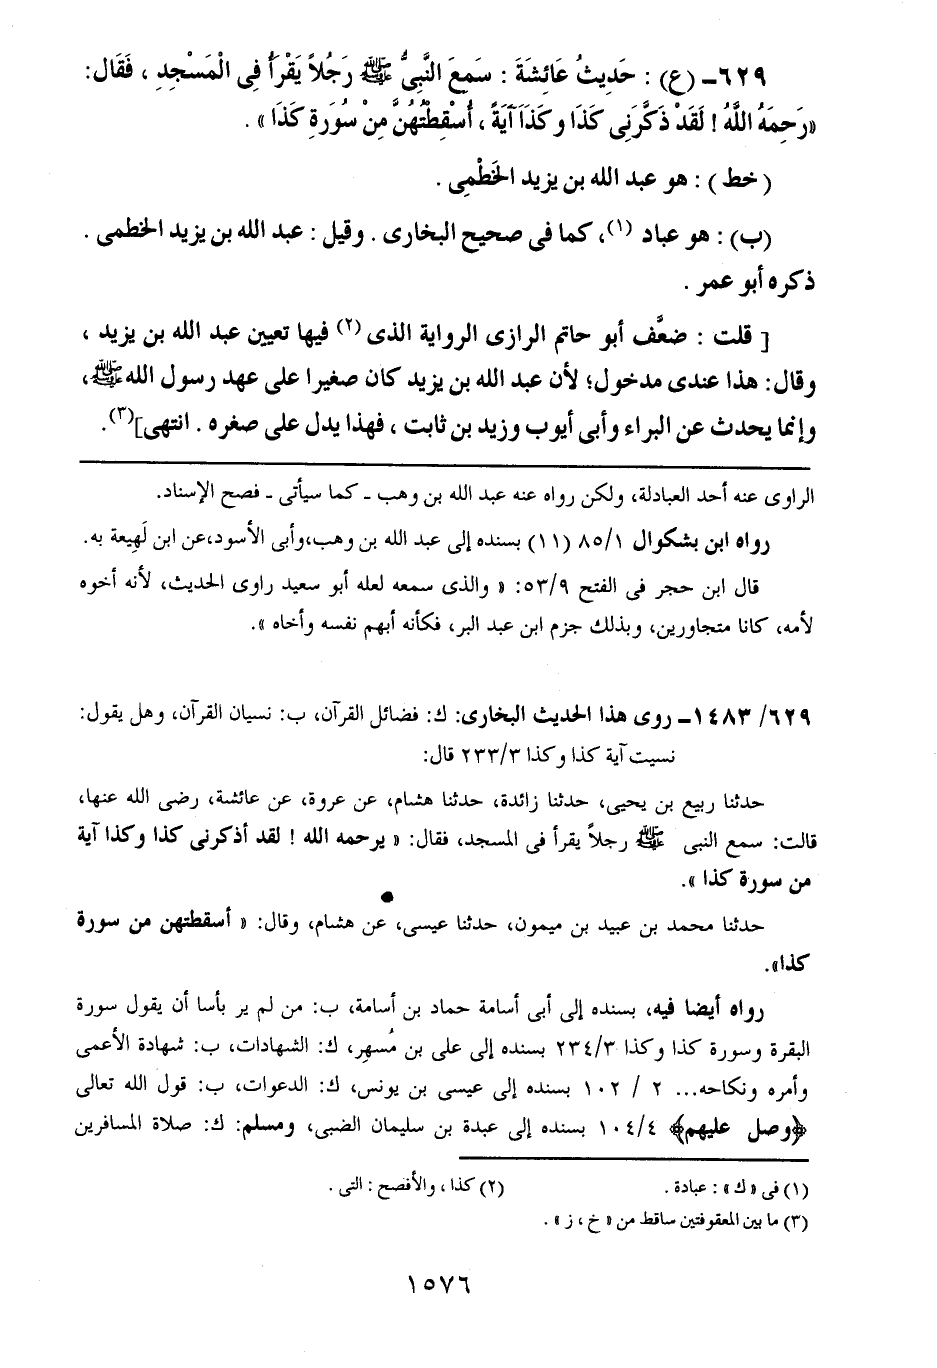 ٦٢٩ـ (ع) : حَدِيثُ عَائِشَةَ : سَمِعَ النَّبِىُّ ﷺ رَجُلاً يَقْرَأُ فِى الْمَسْجِدِ ، فَقَال:
«رَحِمَهُ اللَّهُ ! لَقَدْ ذَكَّرَنِى كَذَا وكَذَا آيَةً ، أُسْقِطْتُهُنَّ مِنْ سُورَةِ كَذَا » .
(خط) : هو عبد الله بن يزيد الخَطْمِى .
(ب) : هو عباد (١)، كما فى صحيح البخارى . وقيل : عبد الله بن يزيد الخطمى .
ذكره أبو عمر .
[ قلت : ضعَّف أبو حاتم الرازى الرواية الذى (٢) فيها تعيين عبد الله بن يزيد ،
وقال: هذا عندى مدخول؛ لأن عبد الله بن يزيد كان صغيرا على عهد رسول الله ﷺ،
وإنما يحدث عن البراء وأبى أيوب وزيد بن ثابت ، فهذا يدل على صغره . انتهى](٣).
الراوى عنه أحد العبادلة، ولكن رواه عنه عبد الله بن وهب ـ كما سيأتى ـ فصح الإسناد.
رواه ابن بشكوال ٨٥/١ (١١) بسنده إلى عبد الله بن وهب،وأبى الأسود،عن ابن لَهِيعة به.
قال ابن حجر فى الفتح ٥٣/٩: « والذى سمعه لعله أبو سعيد راوى الحديث، لأنه أخوه
لأمه، كانا متجاورين، وبذلك جزم ابن عبد البر، فكأنه أبهم نفسه وأخاه ».
٦٢٩/ ١٤٨٣ـ روى هذا الحديث البخارى: ك: فضائل القرآن، ب: نسيان القرآن، وهل يقول:
نسيت آية كذا وكذا ٢٣٣/٣ قال:
حدثنا ربيع بن يحيى، حدثنا زائدة، حدثنا هشام، عن عروة، عن عائشة، رضى الله عنها،
قالت: سمع النبى ﷺ رجلاً يقرأ فى المسجد، فقال: « يرحمه الله ! لقد أذكرنى كذا وكذا آية
من سورة كذا ».
حدثنا محمد بن عبيد بن ميمون، حدثنا عيسى، عن هشام، وقال: « أسقطتهن من سورة
كذا».
رواه أيضا فيه، بسنده إلى أبى أسامة حماد بن أسامة، ب: من لم ير بأسا أن يقول سورة
البقرة وسورة كذا وكذا ٢٣٤/٣ بسنده إلى على بن مُسهِر، ك: الشهادات، ب: شهادة الأعمى
وأمره ونكاحه... ٢ / ١٠٢ بسنده إلى عيسى بن يونس، ك: الدعوات، ب: قول الله تعالى
﴿وصل عليهم﴾ ١٠٤/٤ بسنده إلى عبدة بن سليمان الضبى، ومسلم: ك: صلاة المسافرين
(١) فى «ك» : عبادة . (٢) كذا ، والأفصح : التى .
(٣) ما بين المعقوفتين ساقط من « خ ، ز » .
١٥٧٦